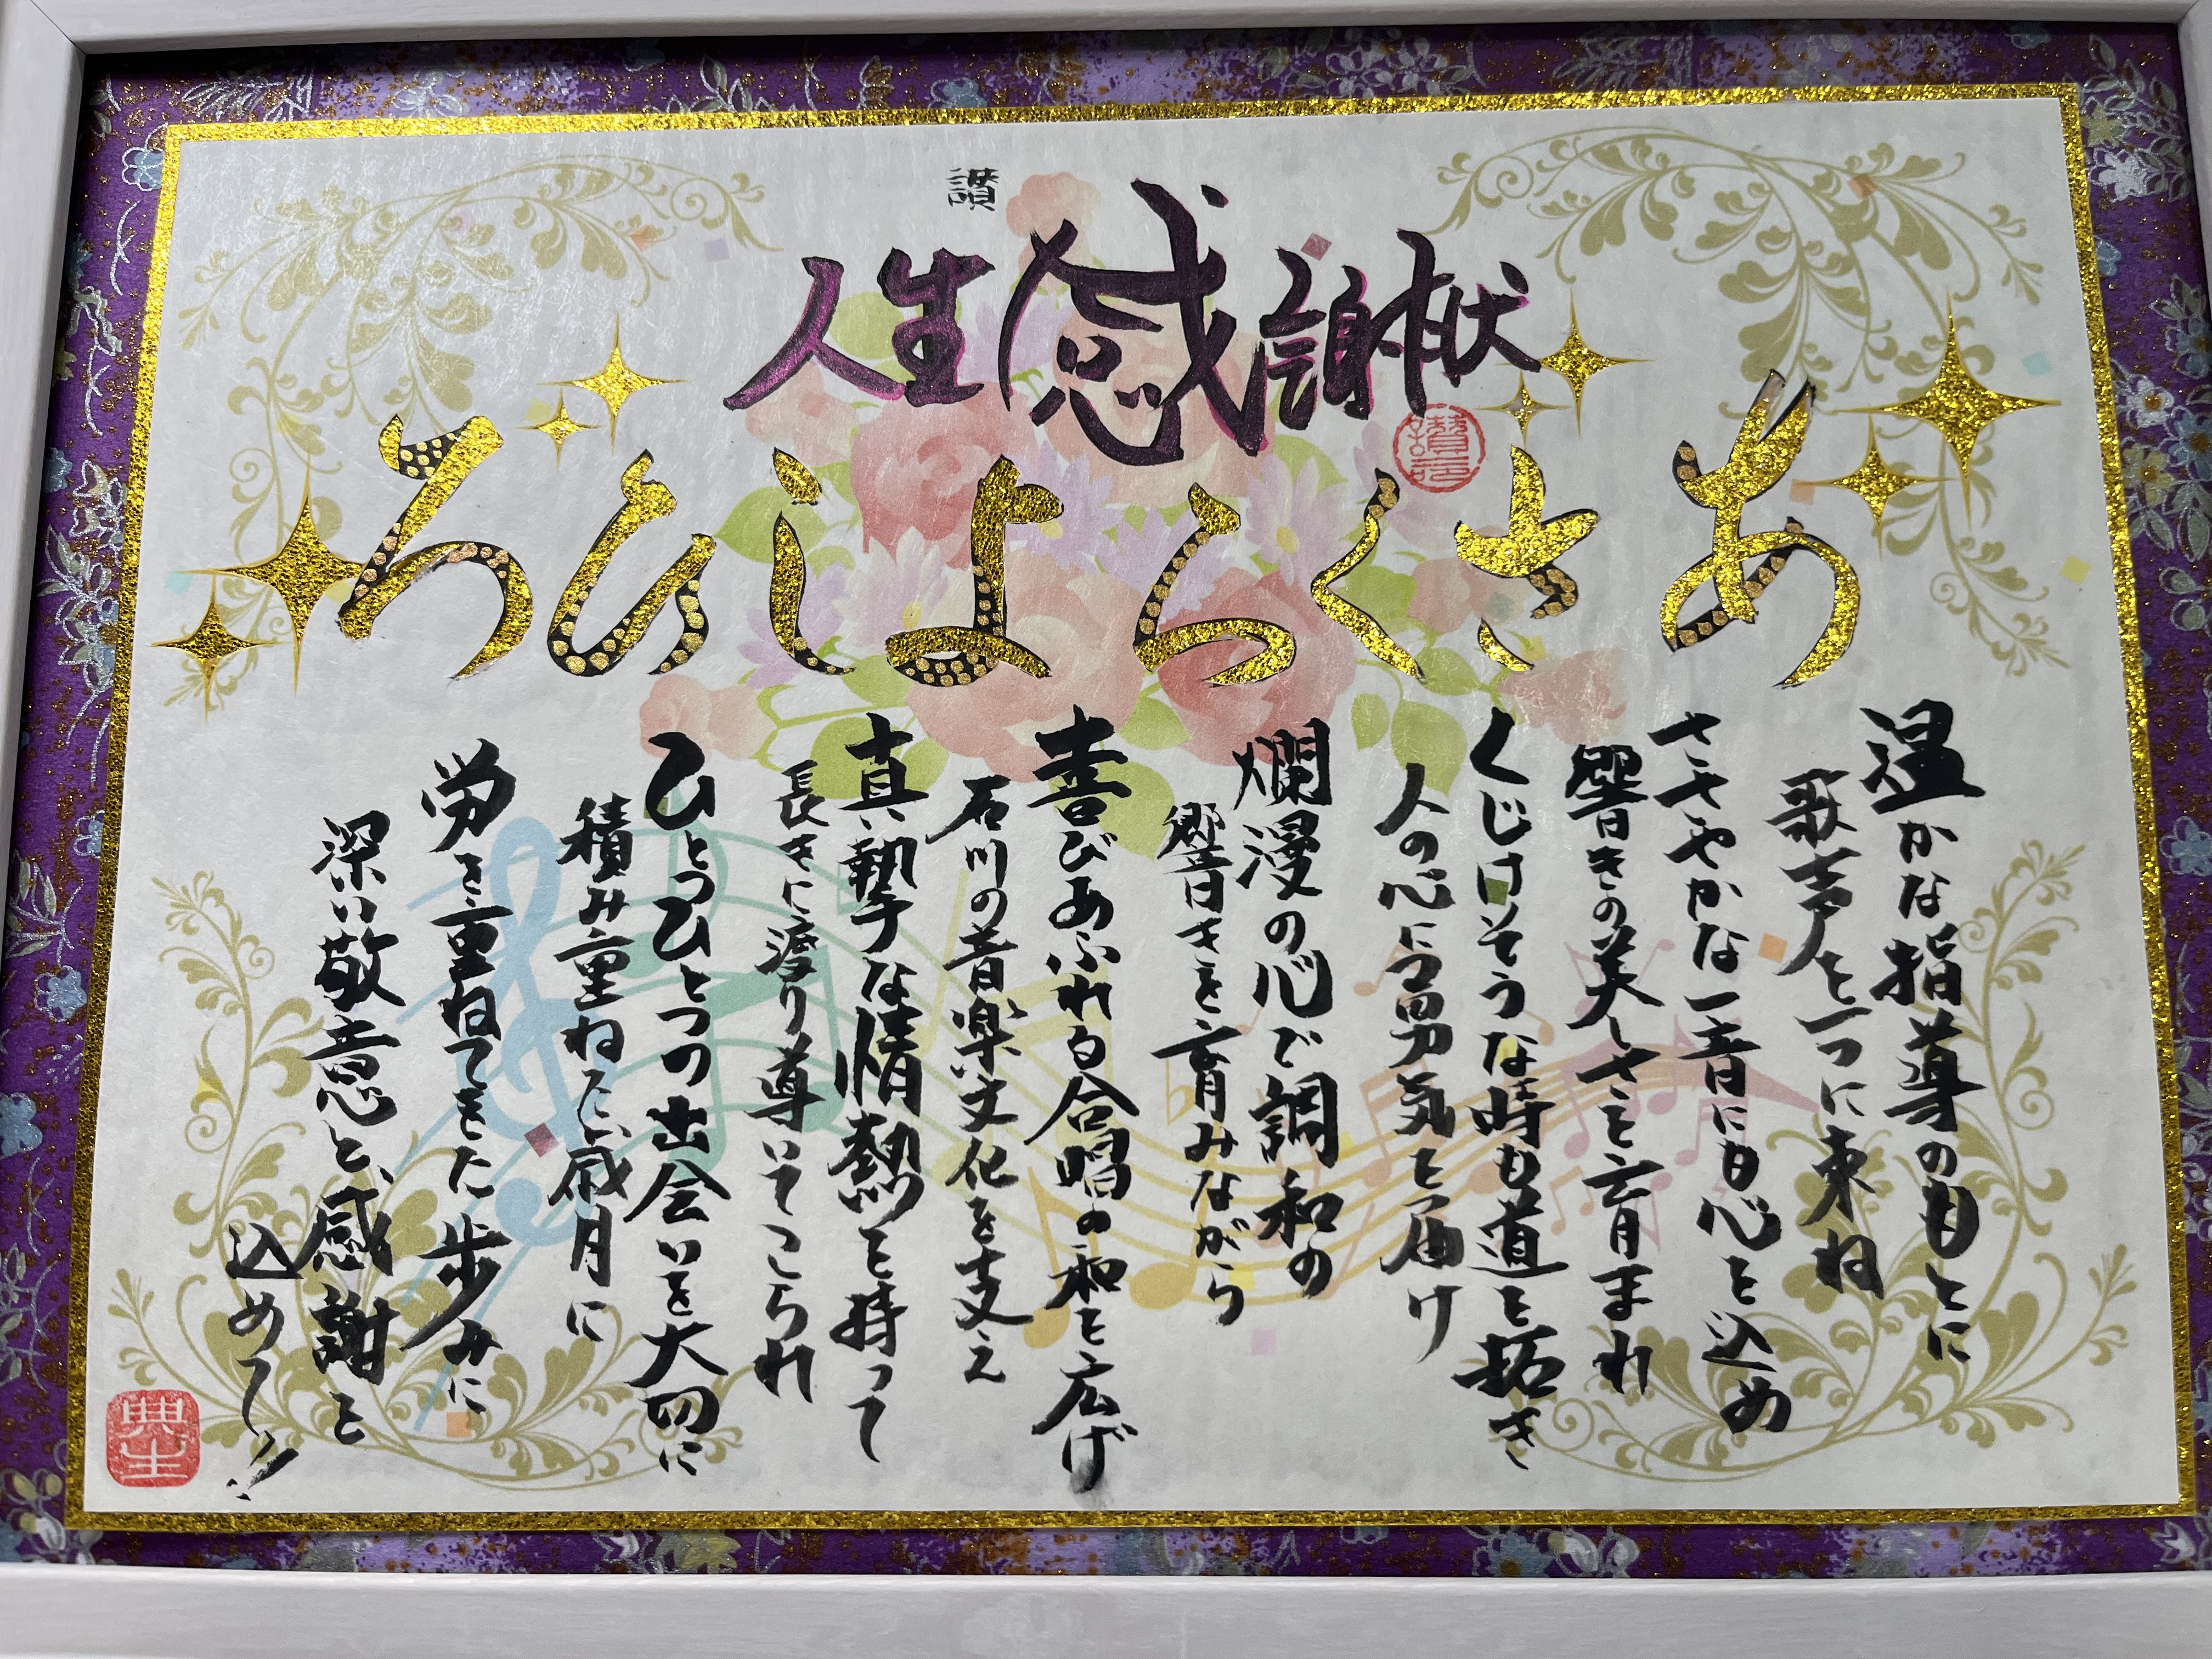 讃
人生感謝状
あさくらよしひろ
温かな指導のもとに
歌声を一つに束ね
ささやかな一音にも心を込め
響きの美しさを育まれ
くじけそうな時も道を拓き
人の心に勇気を届け
爛漫の心で調和の
響きを育みながら
喜びあふれる合唱の和を広げ
石川の音楽文化を支え
真摯な情熱を持って
長きに渡り導いてこられ
ひとつひとつの出会いを大切に
積み重ねた歳月に
労を重ねてきた歩みに
深い敬意と、感謝を
込めて!!
典生